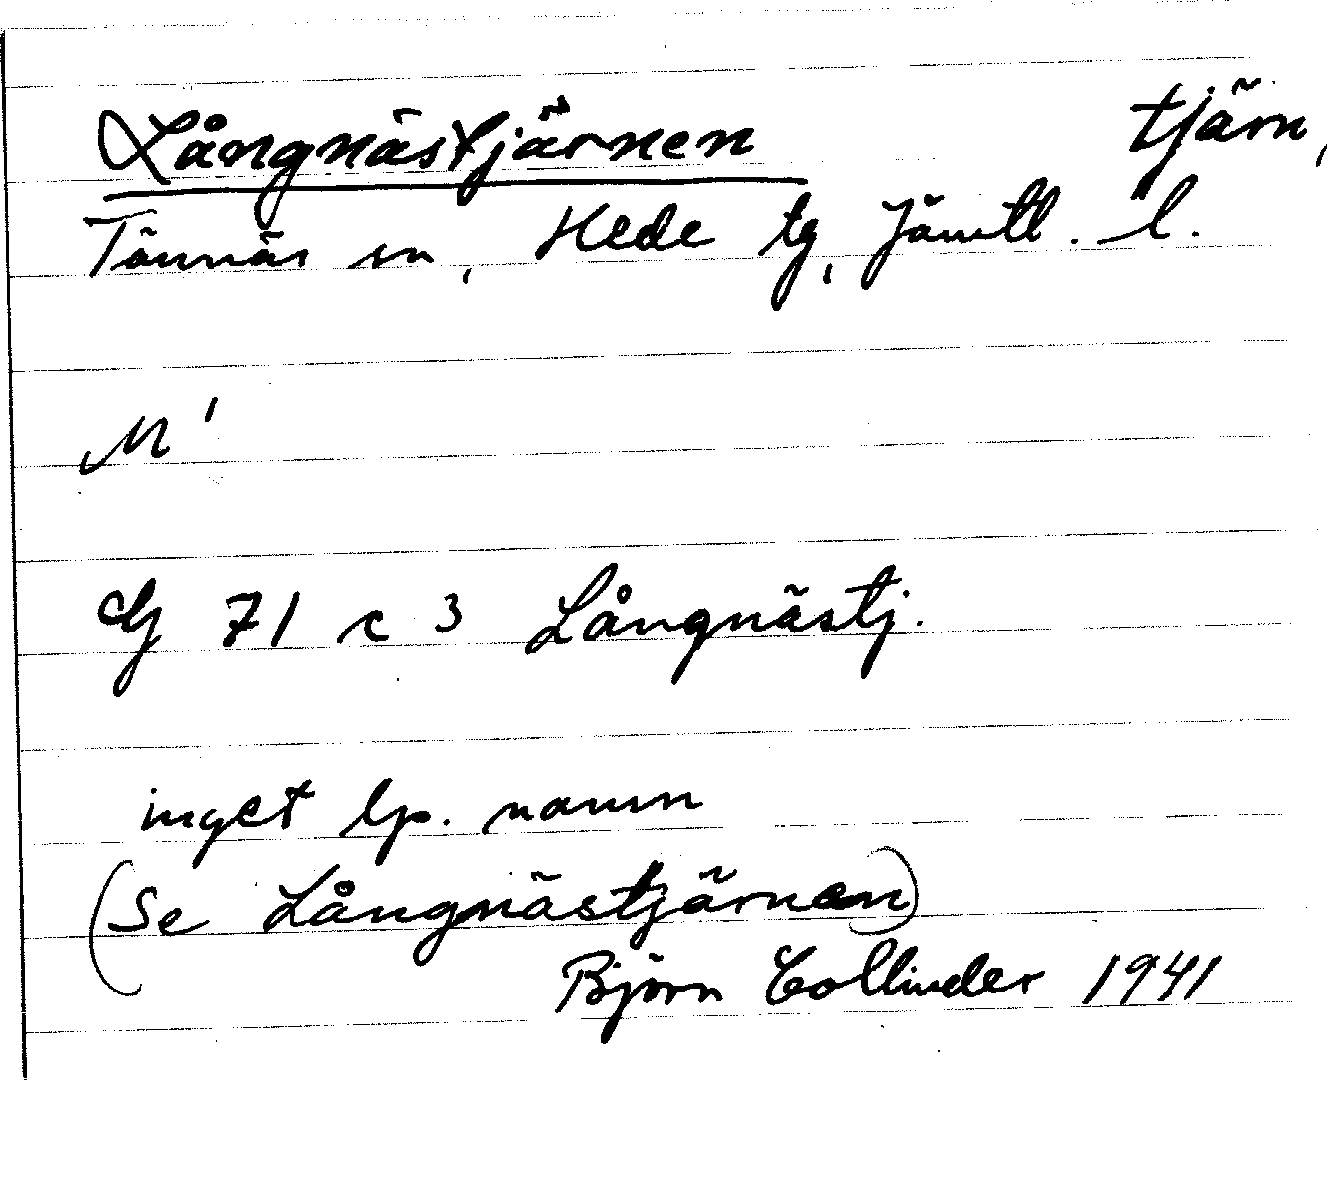 Långnästjärnen tjärn,
Tännäs sn, Hede tg, Jämtl. l.
M'
Gg 71 c 3 Långnästj.
inget lp. namn
(Se Långnästjärnen)
Björn Collinder 1941